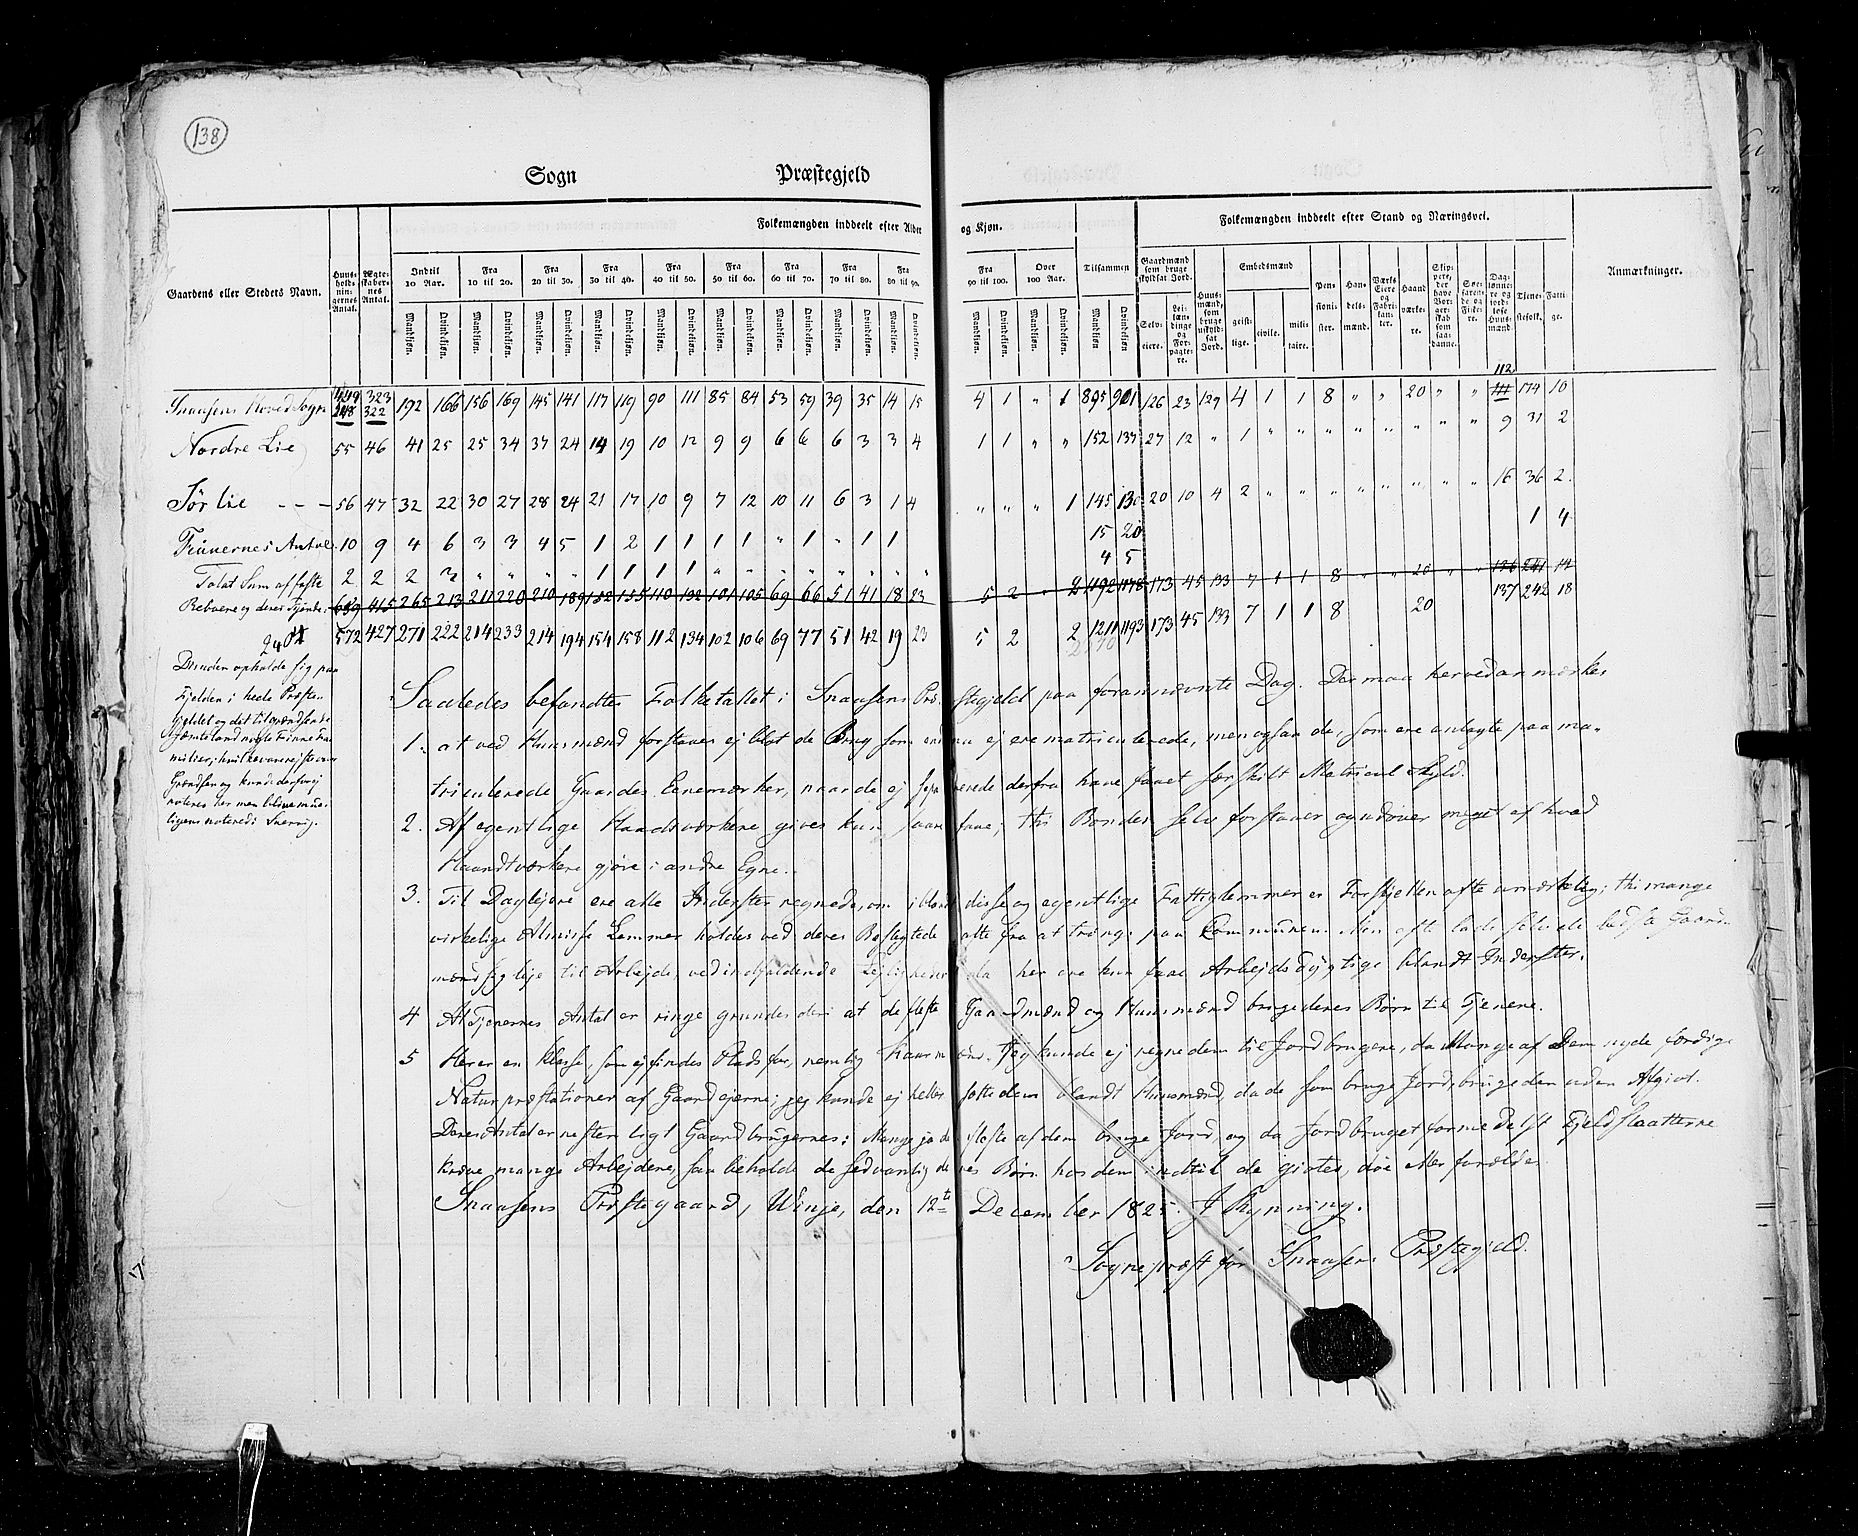 138
Sogn Præstegjeld
Folkemængden inddeelt efter Alder og Kjøn.
Folkemængden inddeelt efter Stand og Næringsvei.
Gaardens eller Stedets Navn.
Huus-holdnin-gernes Antal.
Ægte-skaber-nes Antal.
Indtil 10 Aar. Fra 10 til 20. Fra 20 til 30. Fra 30 til 40. Fra 40 til 50. Fra 50 til 60. Fra 60 til 70. Fra 70 til 80. Fra 80 til 90. Fra 90 til 100. Over 100 Aar. Tilsammen
Mandkjøn. Qvindekjøn.
Gaardmænd som bruge skyldsat Jord. Selv-eiere. Lei-læn-dinge og For-pagte-re.
Huus-mænd, som bruge uskyld-sat Jord.
Embedsmænd geist-lige. civile. mili-taire.
Pen-sioni-ster. Han-dels-mænd. Værks Eiere og Fabri-kan-ter. Haand-værke-re. Skip-pere, der have Bor-ger-skab som saa-danne. Søe-faren-de og Fiske-re. Dag-lønne-re og jord-løse Huus-mænd. Tjene-stefolk. Fatti-ge.
Anmærkninger.
Snaasens Hoved Sogn 323 322 192 166 156 169 145 141 117 119 90 111 85 84 53 59 39 35 14 15 4 1 " 1 895 901 126 23 129 4 1 1 8 " " 20 " " 112 111 174 10
Nordre Lie 55 46 41 25 25 34 37 24 14 19 10 12 9 9 6 6 6 3 3 4 1 1 " " 152 137 27 12 " 1 " " " " " " " " 9 31 2
Sør lie - - - 56 47 32 22 30 27 28 24 21 17 10 9 7 12 10 11 6 3 1 4 " " " 1 145 20 10 4 2 " " " " " " " " 16 36 2.
Finnernes Antal 10 9 4 6 3 3 4 5 1 2 1 1 1 1 " 1 " 1 1 15 20 1 4
Total Sum af faste 2 2 2 " " " " 1 1 1 1 " " " " " " " " 4 5
Beboere og deres Tjenere 415 265 213 211 220 210 189 152 155 110 132 101 105 69 66 51 41 18 23 5 2 " 2 1192 1178 173 45 133 7 1 1 8 " " 20 " " 136 241 14
572 427 271 222 214 233 214 194 154 158 112 134 102 106 69 77 51 42 19 23 5 2 2 1211 1193 173 45 133 7 1 1 8 20 137 242 18
2404
Desuden opholde sig paa
Fjeldene i hele Præste-
gjeldet og det tilgrændsende
Jæmteland nogle Finne Fa
milier, hvilke vare rejste over
Grændsen og kunde derfor ej
noteres her men blive mue-
ligens noterede i Sverrig.
Saaledes befandtes Folketallet i Snaasens Præstegjeld paa forannævnte Dag. Der maa herved anmærkes
1. at ved Huusmænd forstaaes ej blot de Brug som endnu ej ere matriculerede, men ogsaa de, som ere anlagte paa ma-
triculerede Gaardes Enemærker, naar de ej separerede derfra have faaet særskilt Matricul Skyld.
2. Af egentlige Haandværkere gives kun saare faae; thi Bonden selv forstaaer og udøver meget af hvad
Haandtværkere gjøre i andre Egne.
3. Til Daglejere ere alle Inderster regnede, om iblandt disse og egentlige Fattiglemmer er Forskjellen ofte umærkelig; thi mange
virkelige Almisse Lemmer holdes ved deres Beslægtede ofte fra at trænge paa Communen. Men ofte lade selv de bedste Gaard-
mænd sig leje til Arbejde, ved indfaldende Lejligheder, da her ere kun faae Arbejdsdygtige blandt Inderster.
4 At Tjenernes Antal er ringe grundes deri at de fleste Gaardmænd og Huusmænd bruge deres Børn til Tjenere.
5 Her er en Klasse, som ej findes Plads for, nemlig Kaarmænd. Jeg kunde ej regne dem til Jordbrugere, da Mange af Dem nyde færdige
Natur præstationer af Gaardejerne; jeg kunde ej heller sætte dem blandt Huusmænd, da de som bruge Jord, bruge den uden Afgivt.
Deres Antal er næsten ligt Gaardbrugernes: Mange ja de fleste af dem bruge Jord, og da Jordbruget formedelst Fjeldslaatterne
kræve mange Arbejdere, saa beholde de sædvanlig deres Børn hos dem indtil de giftes, døe eller forælder.
Snaasens Præstegaard, Winje, den 12te December 1825. J Rynning.
Sognepræst for Snaasens Præstegjeld.